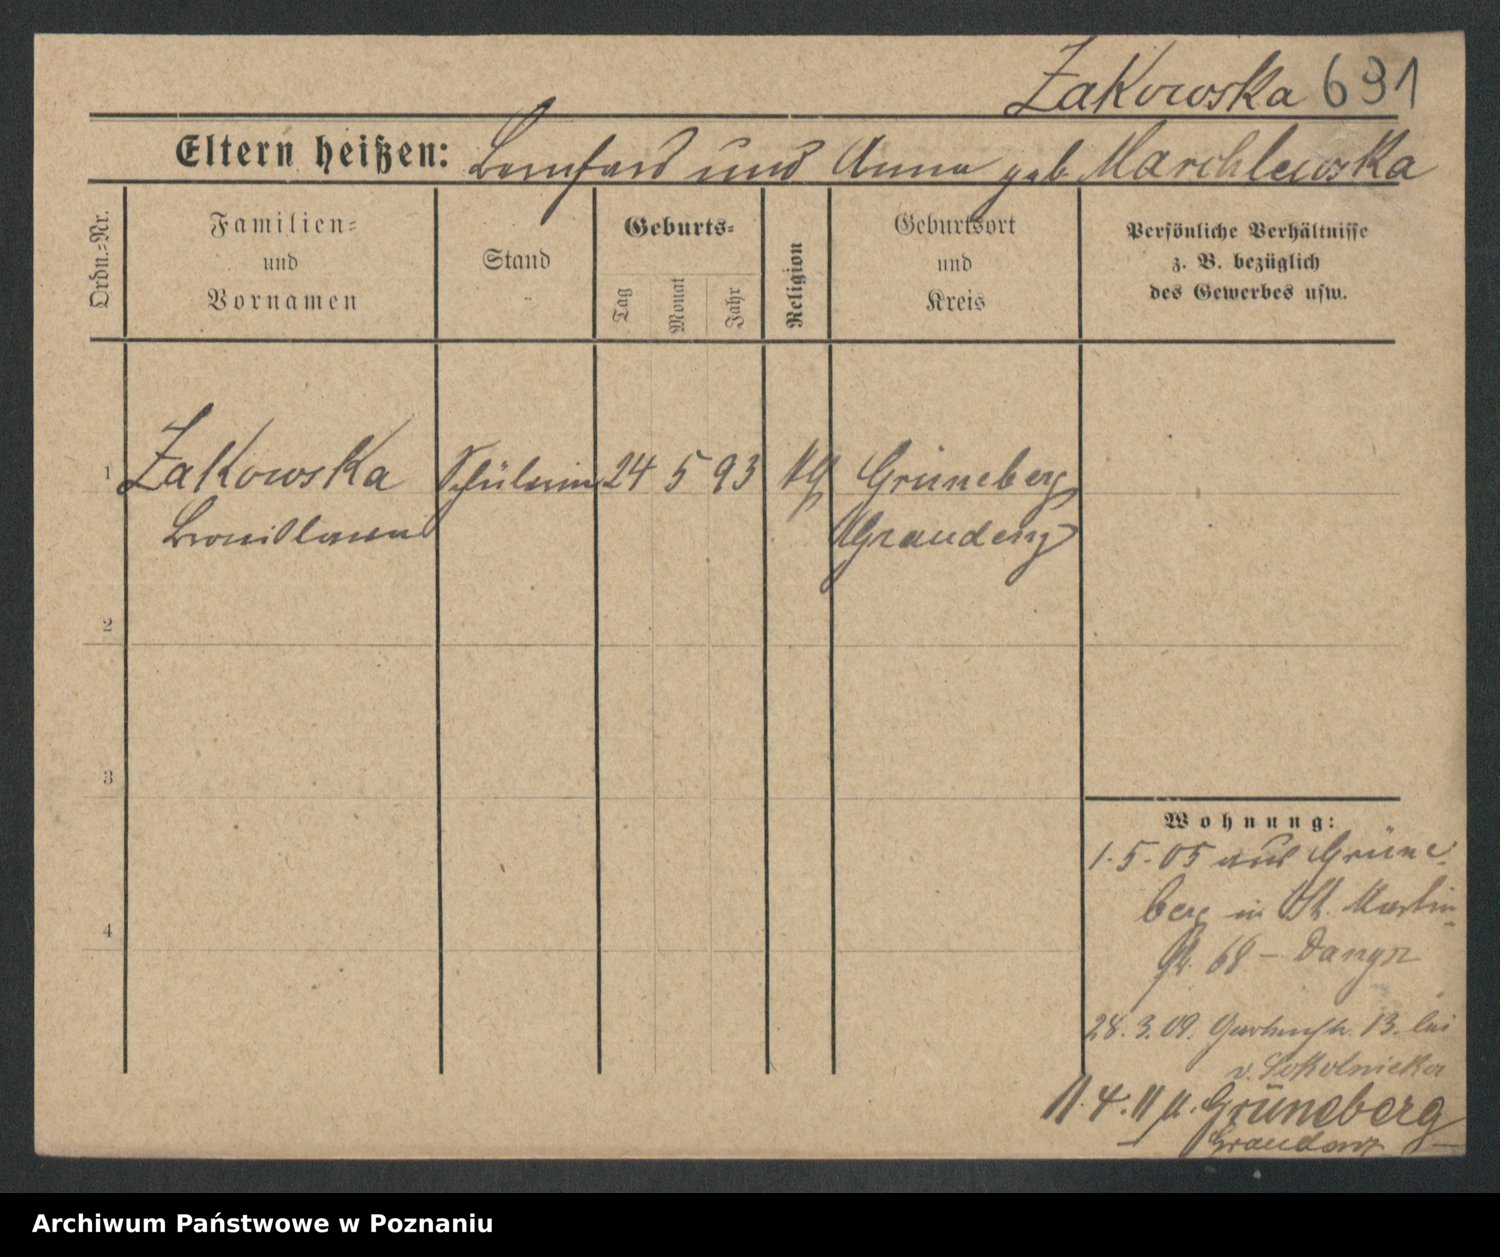 Żakowska 691
Eltern heißen: Bernhard und Anna geb Marchlewska
Ordn.=Nr.
Familien=
und
Vornamen
Stand
Geburts=
Tag
Monat
Jahr
Religion
Geburtsort
und
Kreis
Persönliche Verhältnisse
z. B. bezüglich
des Gewerbes usw.
1 Zakowska Schülerin 24 5 93 Grüneberg
Bronislawa Graudenz
2
3
4
Wohnung:
1.5.05 aus Grüne
berg in St. Martin
68 –
28.3.09. Gartenstr. 13. bei
v. Sokolnicka
11.4.11 n. Grüneberg
Graudenz
Archiwum Państwowe w Poznaniu